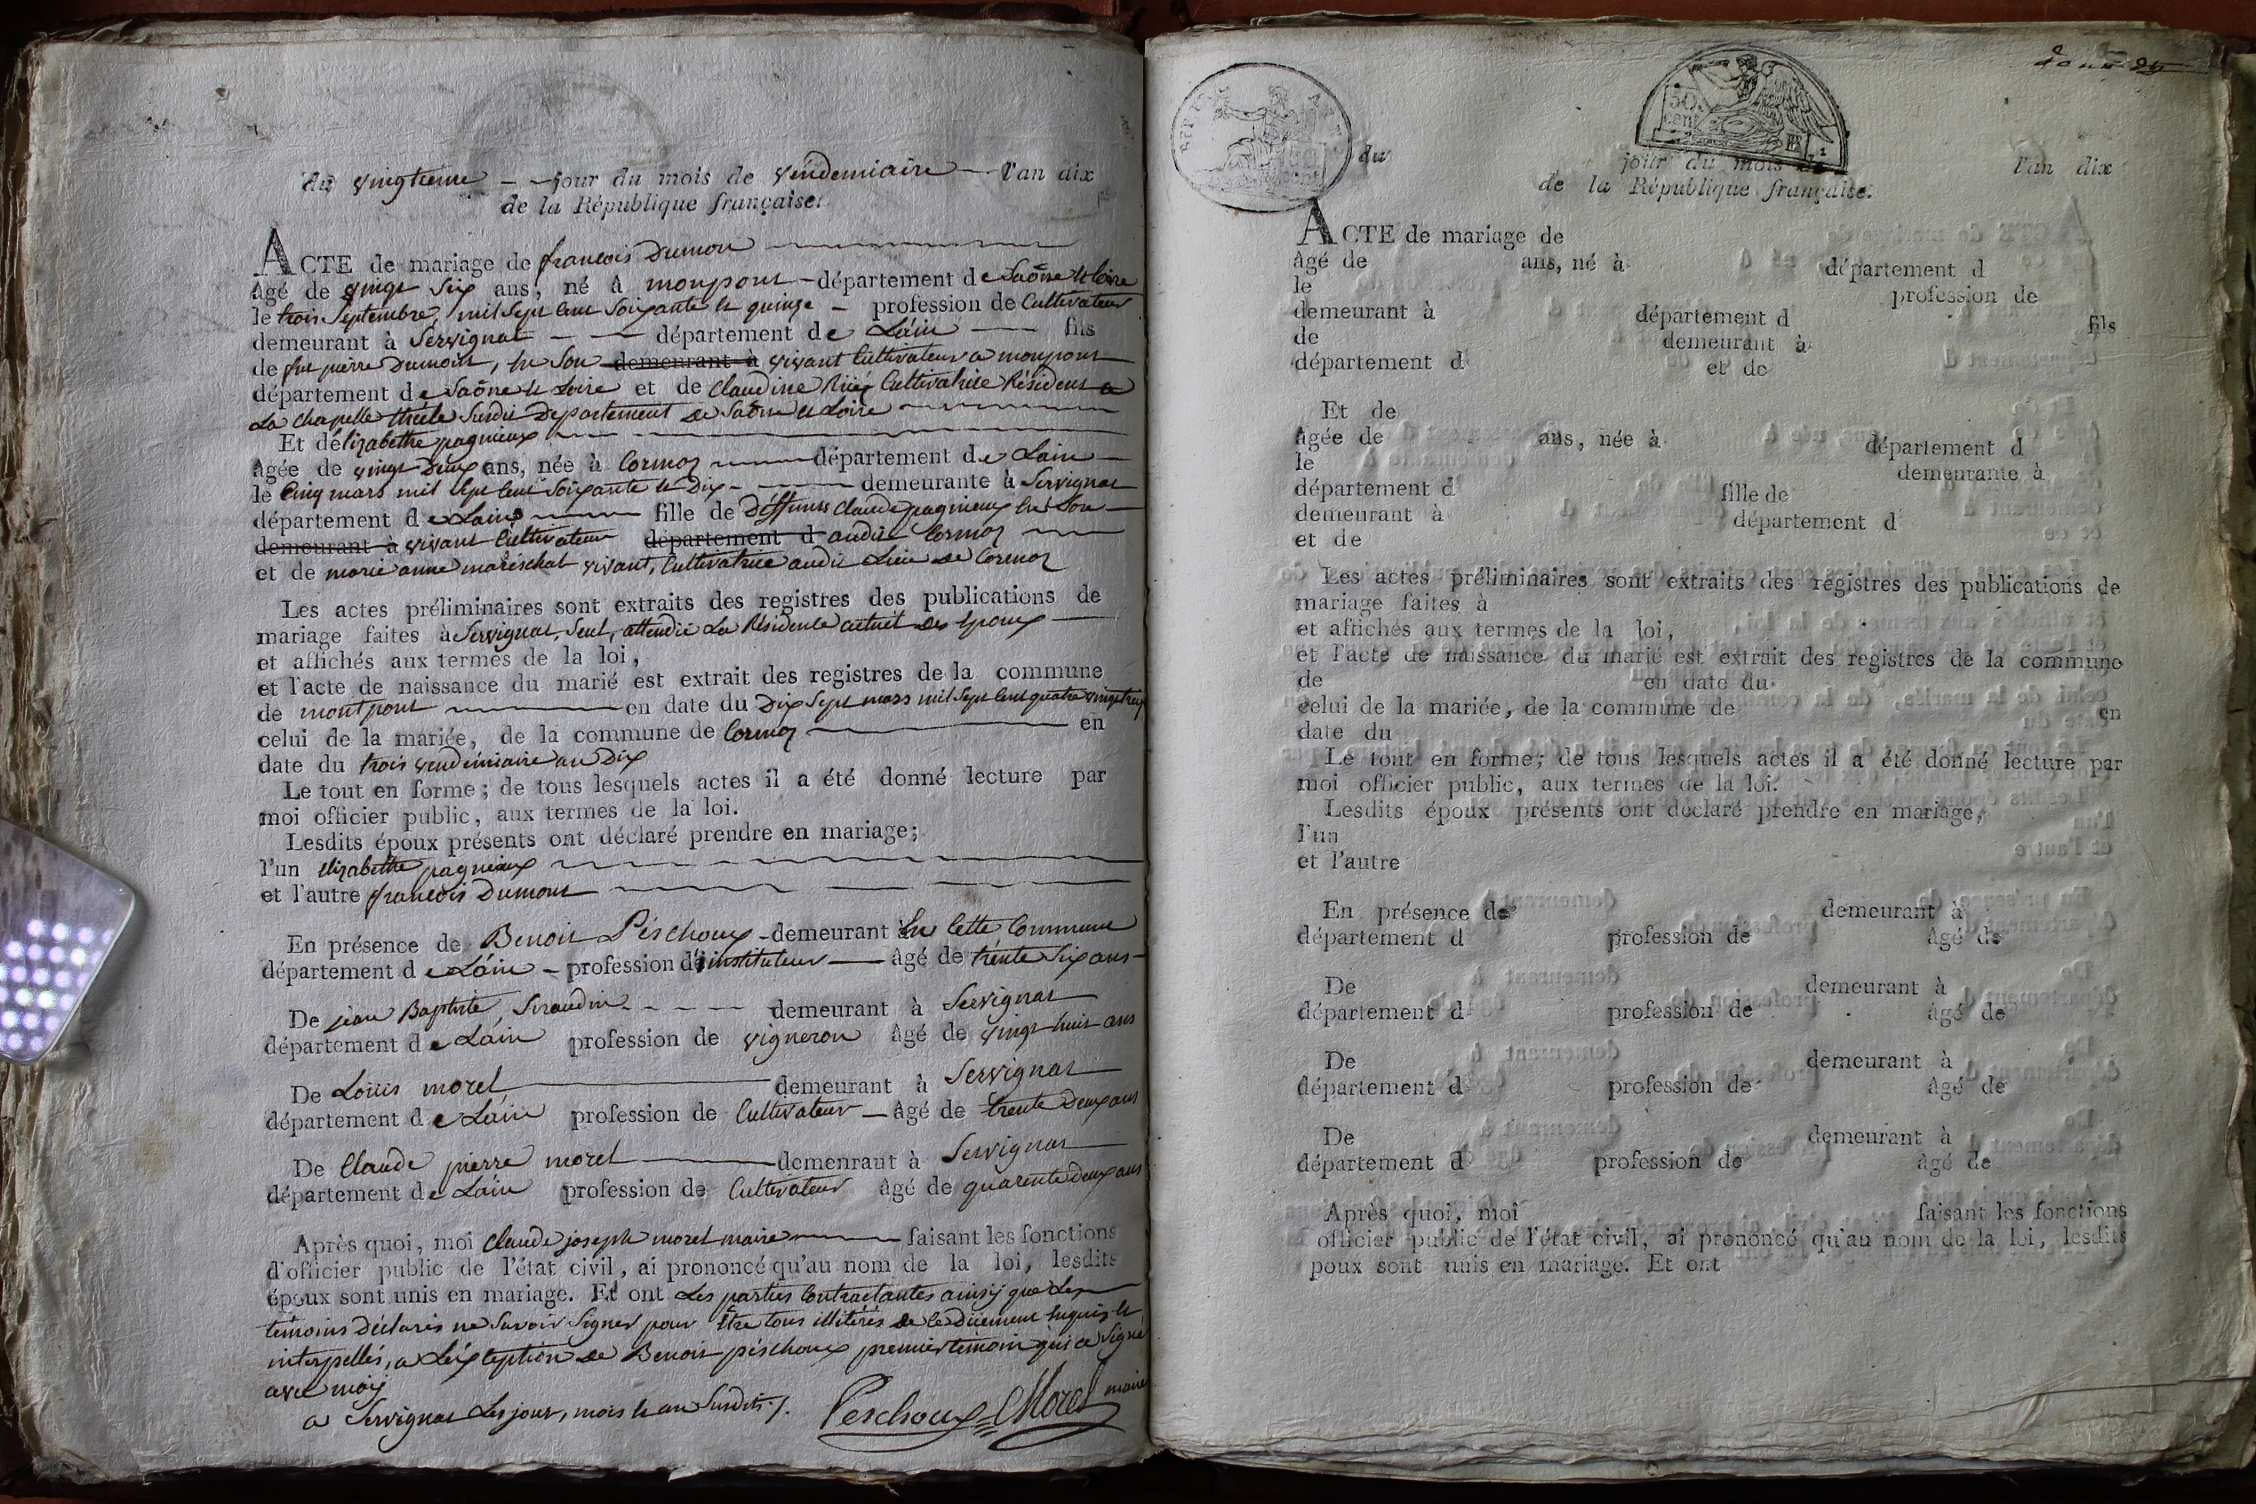 du vingtieme jour du mois de vendemiaire l'an dix
de la République française.
ACTE de mariage de francois Dumon
âgé de vingt six ans, né à monpont département de Saône et loire
le trois Septembre mil sept cent soixante et quinze profession de Cultivateur
demeurant à Servignat département de Láin fils
de feu pierre Dumont, en Son demeurant à vivant Cultivateur a monpont
département de Saône et Loire et de Claudine Cultivatrice Résident a
La Chapelle thécle Susdit Departement de Saône et Loire
Et de elizabethe pagnieux
âgée de vingt Deux ans, née à Cormoz département de Lain
le Cinq mars mil sept cent soixante et Dix demeurante à Servignat
département de Lain fille de Déffunts Claude pagnieux en Son
demeurant à vivant Cultivateur département d audit Cormoz
et de marie anne maréschal vivant, Cultivatrice audit Lieu de Cormoz
Les actes préliminaires sont extraits des registres des publications de
mariage faites à Servignat, Seul, attendu La Résidence actuél des Epoux
et affichés aux termes de la loi,
et l'acte de naissance du marié est extrait des registres de la commune
de montpont en date du Dix Sept mars mil Sept Cent quatre vingt
celui de la mariée, de la commune de Cormoz en
date du trois vendémiaire an Dix
Le tout en forme; de tous lesquels actes il a été donné lecture par
moi officier public, aux termes de la loi.
Lesdits époux présents ont déclaré prendre en mariage;
l'un elizabethe pagnieux
et l'autre francois Dumont
En présence de Benoit Péschoux demeurant En Cette Commune
département de Láin profession d'instituteur âgé de trénte Six ans
De jean Baptiste, Siraudin demeurant à Servignat
département de Láin profession de vigneron âgé de vingt huit ans
De Louis morel demeurant à Servignat
département de Láin profession de Cultivateur âgé de trente Deux ans
De Claude pierre morel demeurant à Servignat
département de Láin profession de Cultivateur âgé de quarente deux ans
Après quoi, moi Claude joseph morel maire faisant les fonctions
d'officier public de l'état civil, ai prononcé qu'au nom de la loi, lesdits
époux sont unis en mariage. Et ont Les parties Contractantes ainsÿ que Les
témoins Déclarés ne Savoir Signer pour Etre tous illitérés de ce Düement requis et
interpellés, a Léxception de Benoit péschoux premier témoin qui a Signé
avec moÿ
a Servignat Les jour, mois et an Susdits.
Peschoux Morel maire
50 cent
du jour du mois de l'an dix
de la République française.
ACTE de mariage de
âgé de ans, né à département d
le profession de
demeurant à département d fils
de demeurant à
département d et de
Et de
âgée de ans, née à département d
le demeurante à
département d fille de
demeurant à département d
et de
Les actes préliminaires sont extraits des registres des publications de
mariage faites à
et affichés aux termes de la loi,
et l'acte de naissance du marié est extrait des registres de la commune
de en date du
celui de la mariée, de la commune de en
date du
Le tout en forme; de tous lesquels actes il a été donné lecture par
moi officier public, aux termes de la loi.
Lesdits époux présents ont déclaré prendre en mariage,
l'un
et l'autre
En présence de demeurant à
département d profession de âgé de
De demeurant à
département d profession de âgé de
De demeurant à
département d profession de âgé de
De demeurant à
département d profession de âgé de
Après quoi, moi faisant les fonctions
officier public de l'état civil, ai prononcé qu'au nom de la loi, lesdits
poux sont unis en mariage. Et ont